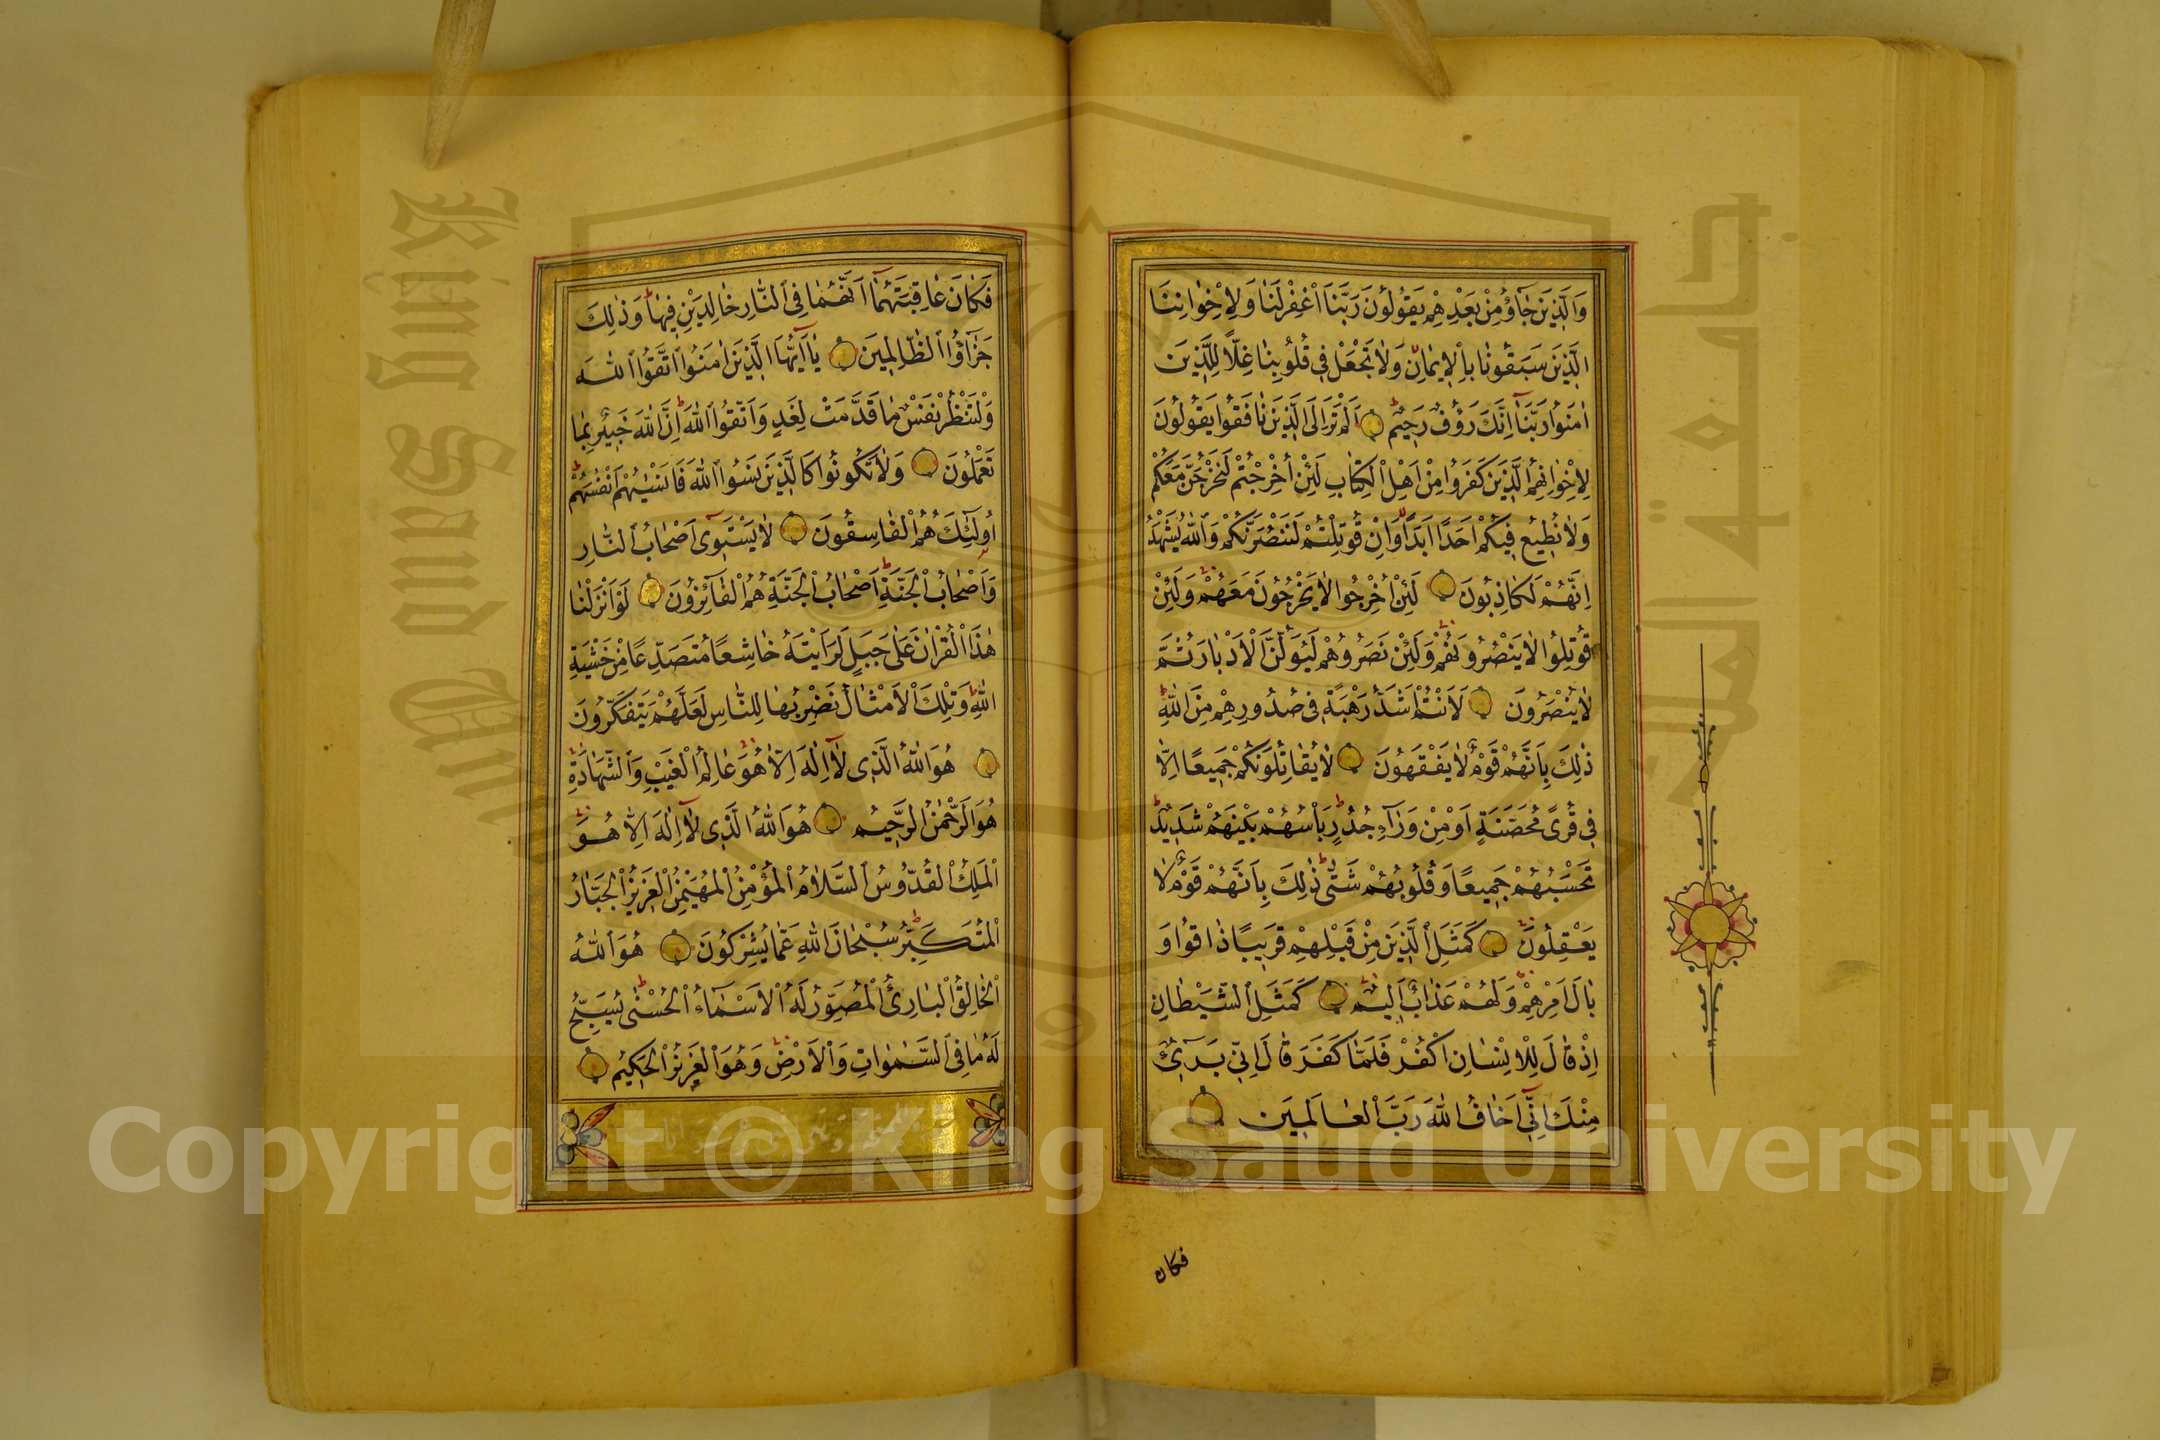 وَالَّذِينَ جَاؤُ مِنْ بَعْدِهِمْ يَقُولُونَ رَبَّنَا اغْفِرْ لَنَا وَلِاِخْوَانِنَا
الَّذِينَ سَبَقُونَا بِالْاِيمَانِ وَلَا تَجْعَلْ فِي قُلُوبِنَا غِلًّا لِلَّذِينَ
اٰمَنُوا رَبَّنَا اِنَّكَ رَؤُفٌ رَحِيمٌ اَلَمْ تَرَ اِلَى الَّذِينَ نَافَقُوا يَقُولُونَ
لِاِخْوَانِهِمُ الَّذِينَ كَفَرُوا مِنْ اَهْلِ الْكِتَابِ لَئِنْ اُخْرِجْتُمْ لَنَخْرُجَنَّ مَعَكُمْ
وَلَا نُطِيعُ فِيكُمْ اَحَدًا اَبَدًا وَاِنْ قُوتِلْتُمْ لَنَنْصُرَنَّكُمْ وَاللّٰهُ يَشْهَدُ
اِنَّهُمْ لَكَاذِبُونَ لَئِنْ اُخْرِجُوا لَا يَخْرُجُونَ مَعَهُمْ وَلَئِنْ
قُوتِلُوا لَا يَنْصُرُونَهُمْ وَلَئِنْ نَصَرُوهُمْ لَيُوَلُّنَّ الْاَدْبَارَ ثُمَّ
لَا يُنْصَرُونَ لَاَنْتُمْ اَشَدُّ رَهْبَةً فِي صُدُورِهِمْ مِنَ اللّٰهِ
ذٰلِكَ بِاَنَّهُمْ قَوْمٌ لَا يَفْقَهُونَ لَا يُقَاتِلُونَكُمْ جَمِيعًا اِلَّا
فِي قُرًى مُحَصَّنَةٍ اَوْ مِنْ وَرَاءِ جُدُرٍ بَاْسُهُمْ بَيْنَهُمْ شَدِيدٌ
تَحْسَبُهُمْ جَمِيعًا وَقُلُوبُهُمْ شَتّٰى ذٰلِكَ بِاَنَّهُمْ قَوْمٌ لَا
يَعْقِلُونَ كَمَثَلِ الَّذِينَ مِنْ قَبْلِهِمْ قَرِيبًا ذَاقُوا وَ
بَالَ اَمْرِهِمْ وَلَهُمْ عَذَابٌ اَلِيمٌ كَمَثَلِ الشَّيْطَانِ
اِذْ قَالَ لِلْاِنْسَانِ اكْفُرْ فَلَمَّا كَفَرَ قَالَ اِنِّي بَرِيءٌ
مِنْكَ اِنِّي اَخَافُ اللّٰهَ رَبَّ الْعَالَمِينَ
فكان
فَكَانَ عَاقِبَتَهُمَا اَنَّهُمَا فِي النَّارِ خَالِدَيْنِ فِيهَا وَذٰلِكَ
جَزَاؤُا الظَّالِمِينَ يَا اَيُّهَا الَّذِينَ اٰمَنُوا اتَّقُوا اللّٰهَ
وَلْتَنْظُرْ نَفْسٌ مَا قَدَّمَتْ لِغَدٍ وَاتَّقُوا اللّٰهَ اِنَّ اللّٰهَ خَبِيرٌ بِمَا
تَعْمَلُونَ وَلَا تَكُونُوا كَالَّذِينَ نَسُوا اللّٰهَ فَاَنْسٰيهُمْ اَنْفُسَهُمْ
اُولٰئِكَ هُمُ الْفَاسِقُونَ لَا يَسْتَوِي اَصْحَابُ النَّارِ
وَاَصْحَابُ الْجَنَّةِ اَصْحَابُ الْجَنَّةِ هُمُ الْفَائِزُونَ لَوْ اَنْزَلْنَا
هٰذَا الْقُرْاٰنَ عَلٰى جَبَلٍ لَرَاَيْتَهُ خَاشِعًا مُتَصَدِّعًا مِنْ خَشْيَةِ
اللّٰهِ وَتِلْكَ الْاَمْثَالُ نَضْرِبُهَا لِلنَّاسِ لَعَلَّهُمْ يَتَفَكَّرُونَ
هُوَ اللّٰهُ الَّذِي لَا اِلٰهَ اِلَّا هُوَ عَالِمُ الْغَيْبِ وَالشَّهَادَةِ
هُوَ الرَّحْمٰنُ الرَّحِيمُ هُوَ اللّٰهُ الَّذِي لَا اِلٰهَ اِلَّا هُوَ
الْمَلِكُ الْقُدُّوسُ السَّلَامُ الْمُؤْمِنُ الْمُهَيْمِنُ الْعَزِيزُ الْجَبَّارُ
الْمُتَكَبِّرُ سُبْحَانَ اللّٰهِ عَمَّا يُشْرِكُونَ هُوَ اللّٰهُ
الْخَالِقُ الْبَارِئُ الْمُصَوِّرُ لَهُ الْاَسْمَاءُ الْحُسْنٰى يُسَبِّحُ
لَهُ مَا فِي السَّمٰوَاتِ وَالْاَرْضِ وَهُوَ الْعَزِيزُ الْحَكِيمُ
King Saud University
جامعة الملك
Copyright © King Saud University